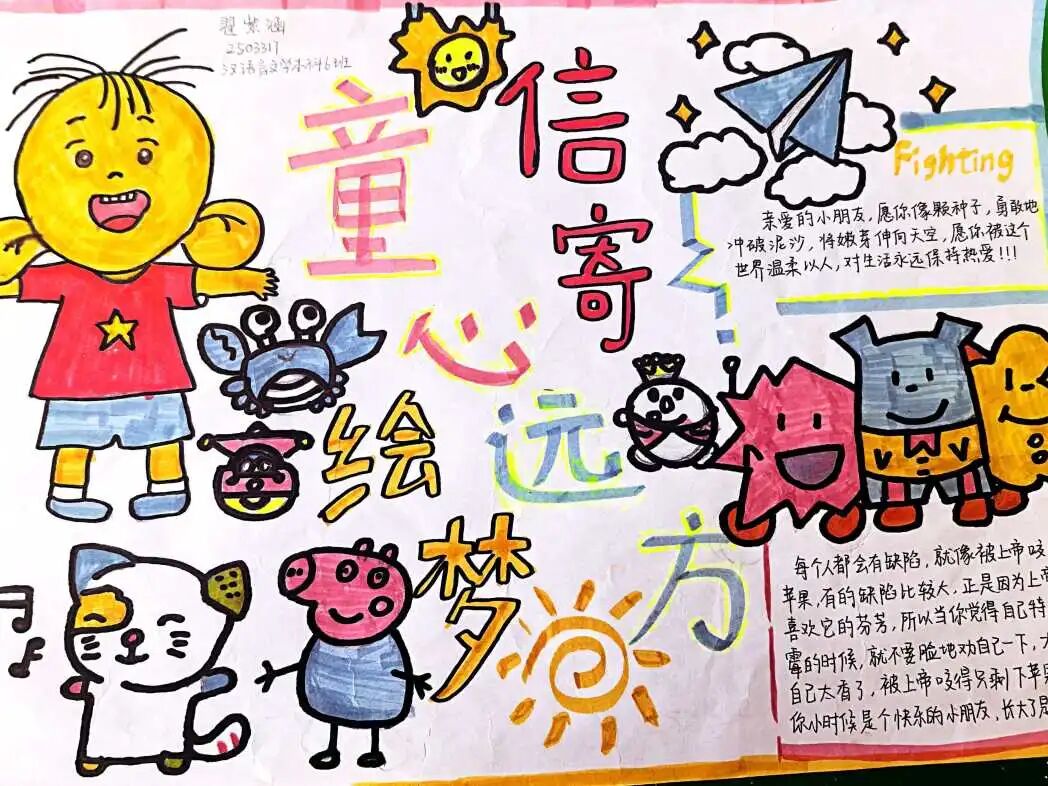 翟紫涵
2503317
汉语言文学本科6班
童心绘梦
信寄远方
Fighting
亲爱的小朋友，愿你像颗种子，勇敢地
冲破泥沙，将嫩芽伸向天空，愿你被这个
世界温柔以人，对生活永远保持热爱!!!
每个人都会有缺陷，就像被上帝咬
苹果，有的缺陷比较大，正是因为上帝
喜欢它的芬芳，所以当你觉得自己特
霉的时候，就不要脸地劝自己一下，
自己太香了，被上帝咬得只剩下苹果
你小时候是个快乐的小朋友，长大了